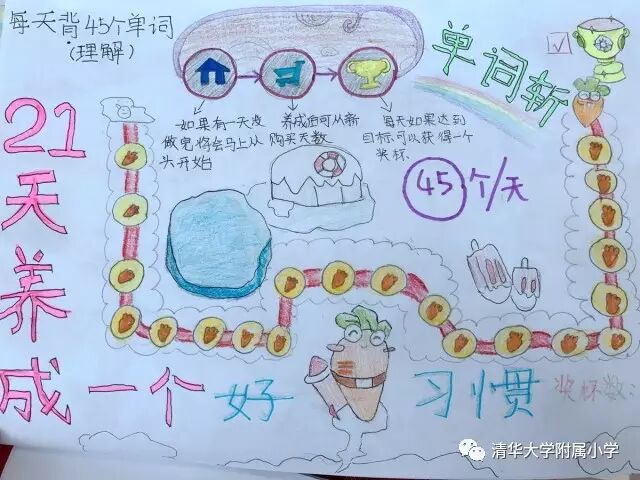 每天背45个单词
(理解)
单词斩
一如果有一天没
做完将会马上从
头开始
养成后可从新
购买天数
每天如果达到
目标可以获得一个
奖杯.
45个/天
21天养成一个好习惯
奖杯数:
清华大学附属小学